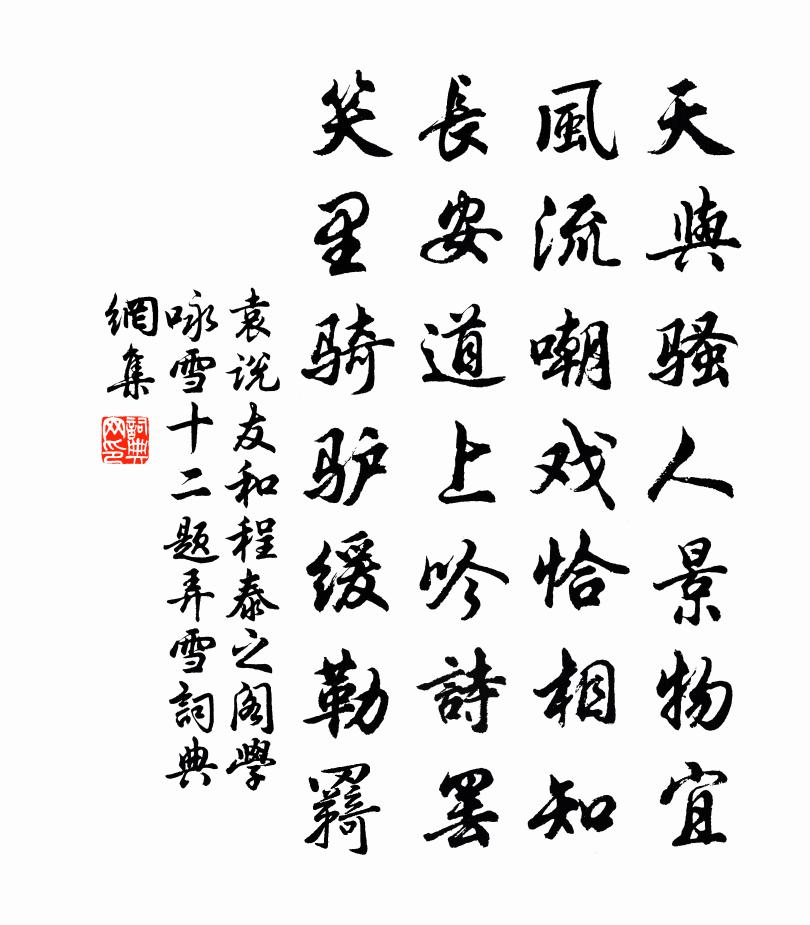 天與骚人景物宜
風流嘲戏恰相知
長安道上吟詩罢
笑里骑驴缓勒羁
袁说友和程泰之阁學
咏雪十二题弄雪詞典
網集
詞典网印